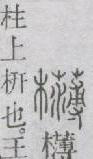 欂欂
柱上枅也。王